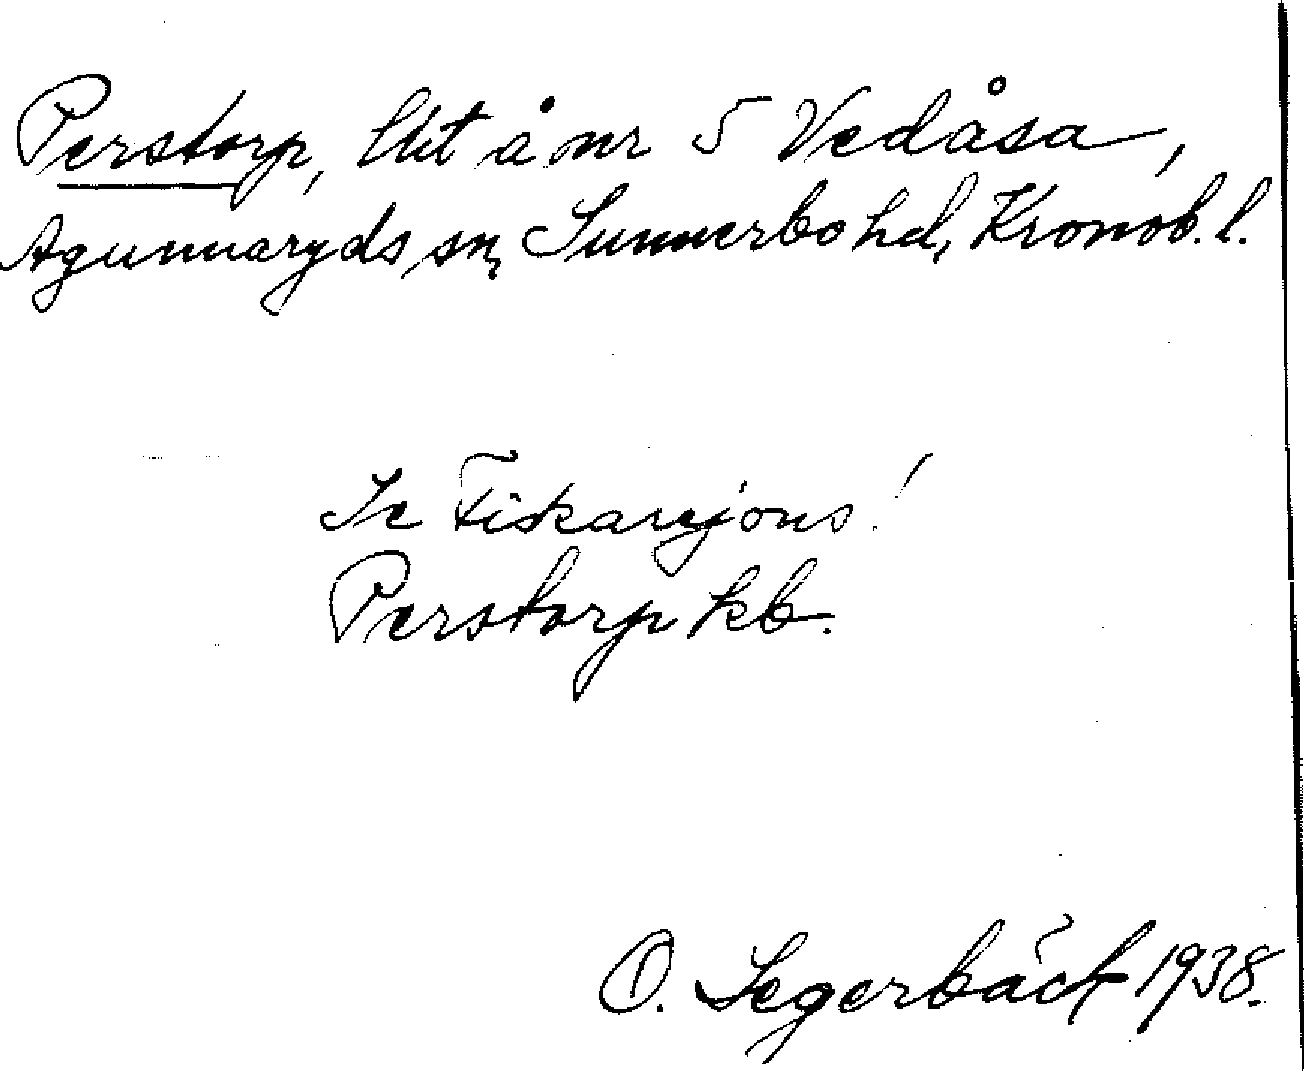 Perstorp, lht å nr 5 Vedåsa,
Agunnaryds sn, Sunnerbo hd, Kronob. l.
Se Fiskarejons!
Perstorp kb.
O. Segerbäck 1938.